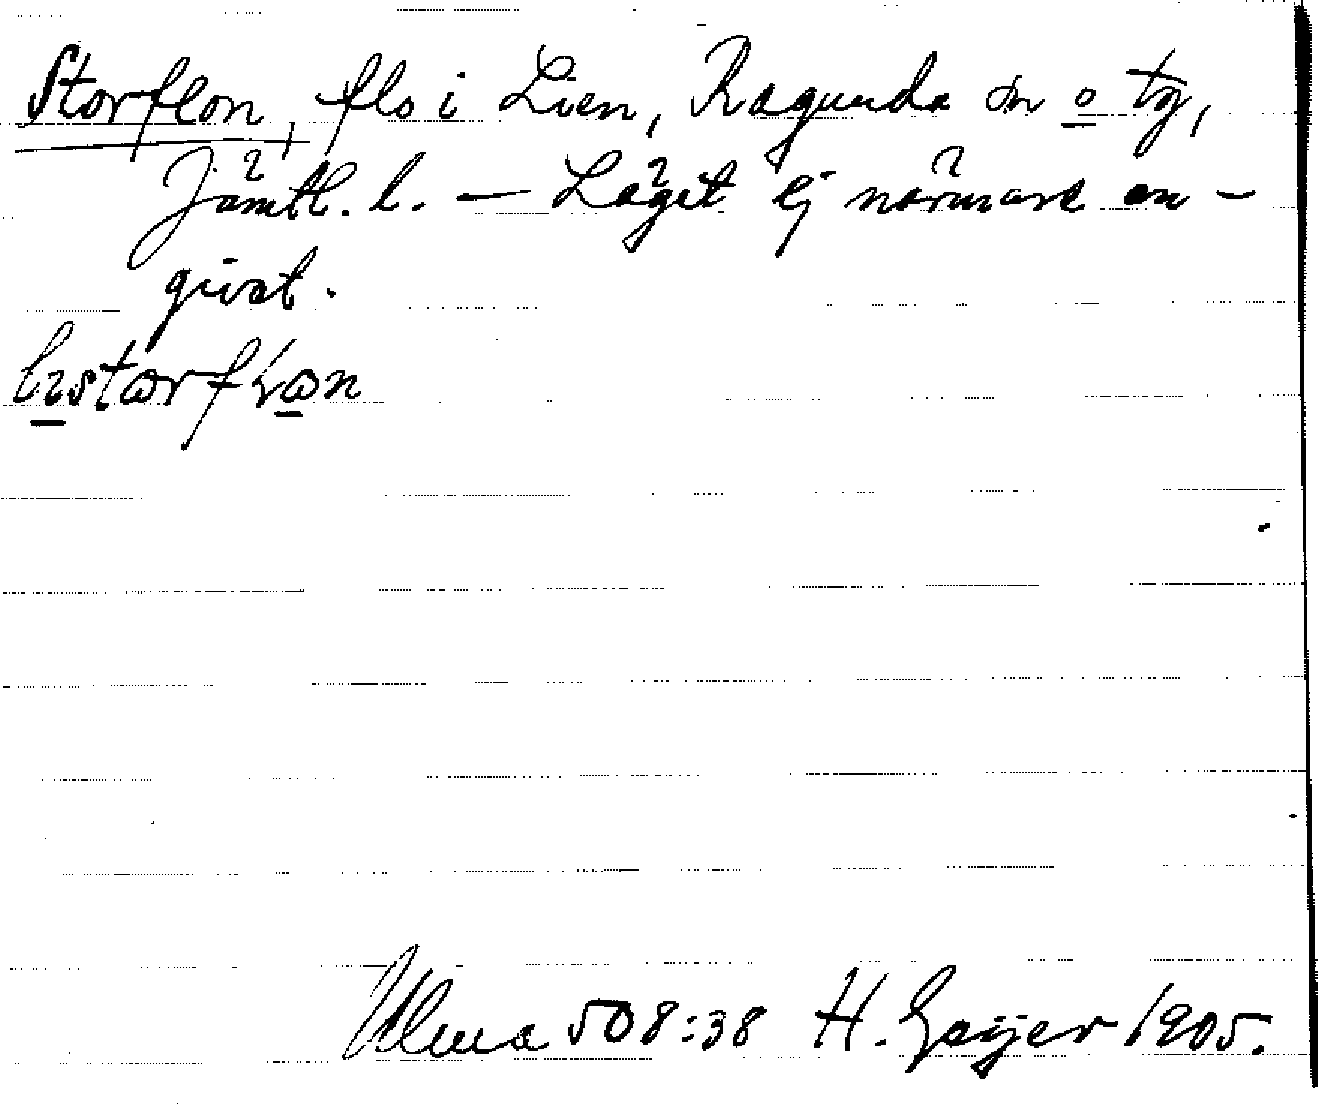 Storflon, flo i Lien, Ragunda sn o tg,
Jämtl. l. — Läget ej närmare an-
givet.
Ulma 508:38 H. Geijer 1905.